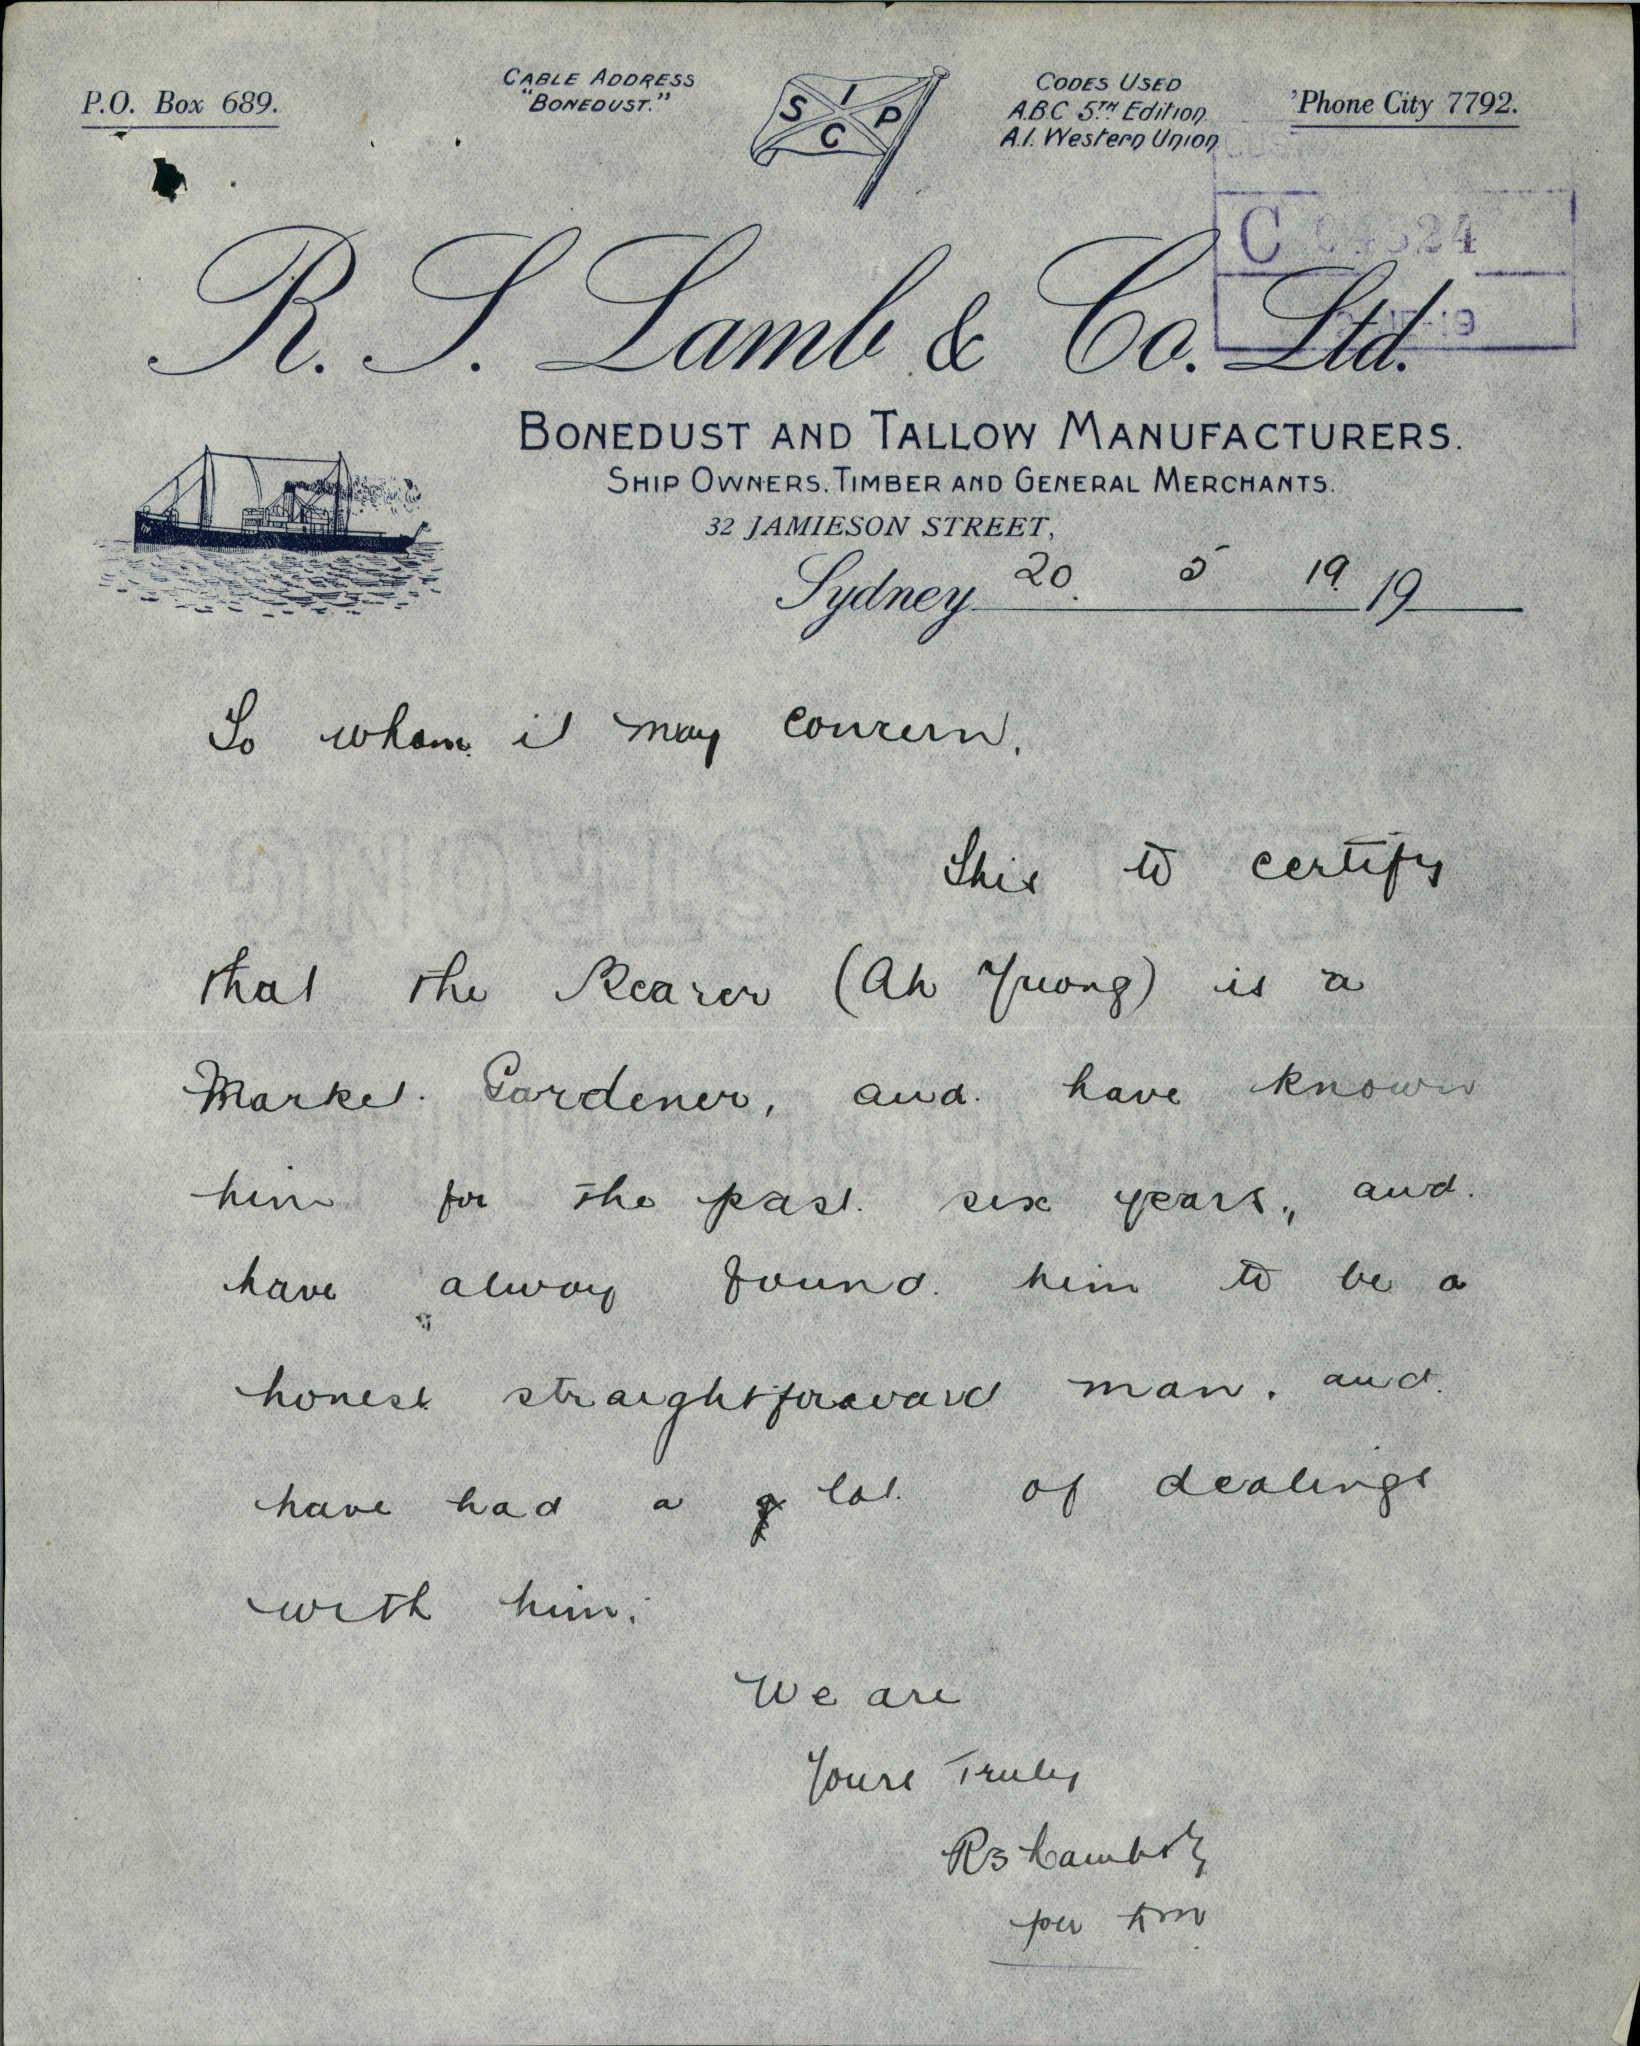 P.O. Box 689.
CABLE ADDRESS
"BONEDUST."
S I P C
CODES USED
A.B.C 5TH Edition
A.1. Western Union
'Phone City 7792.
C 04824
19
R. S. Lamb & Co. Ltd.
BONEDUST AND TALLOW MANUFACTURERS.
SHIP OWNERS, TIMBER AND GENERAL MERCHANTS.
32 JAMIESON STREET,
Sydney 20. 5 19. 19
To whom it may concern.
This to certify
that the Bearer (Ah Yuong) is a
Market Gardener, and have known
him for the past six years, and
have alway found him to be a
honest straightforward man, and
have had a lot of dealings
with him.
We are
Yours Truly
RS Lamb &
per